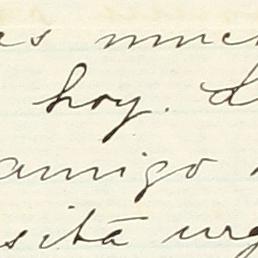 es much
hoy.
amigo
sita urg